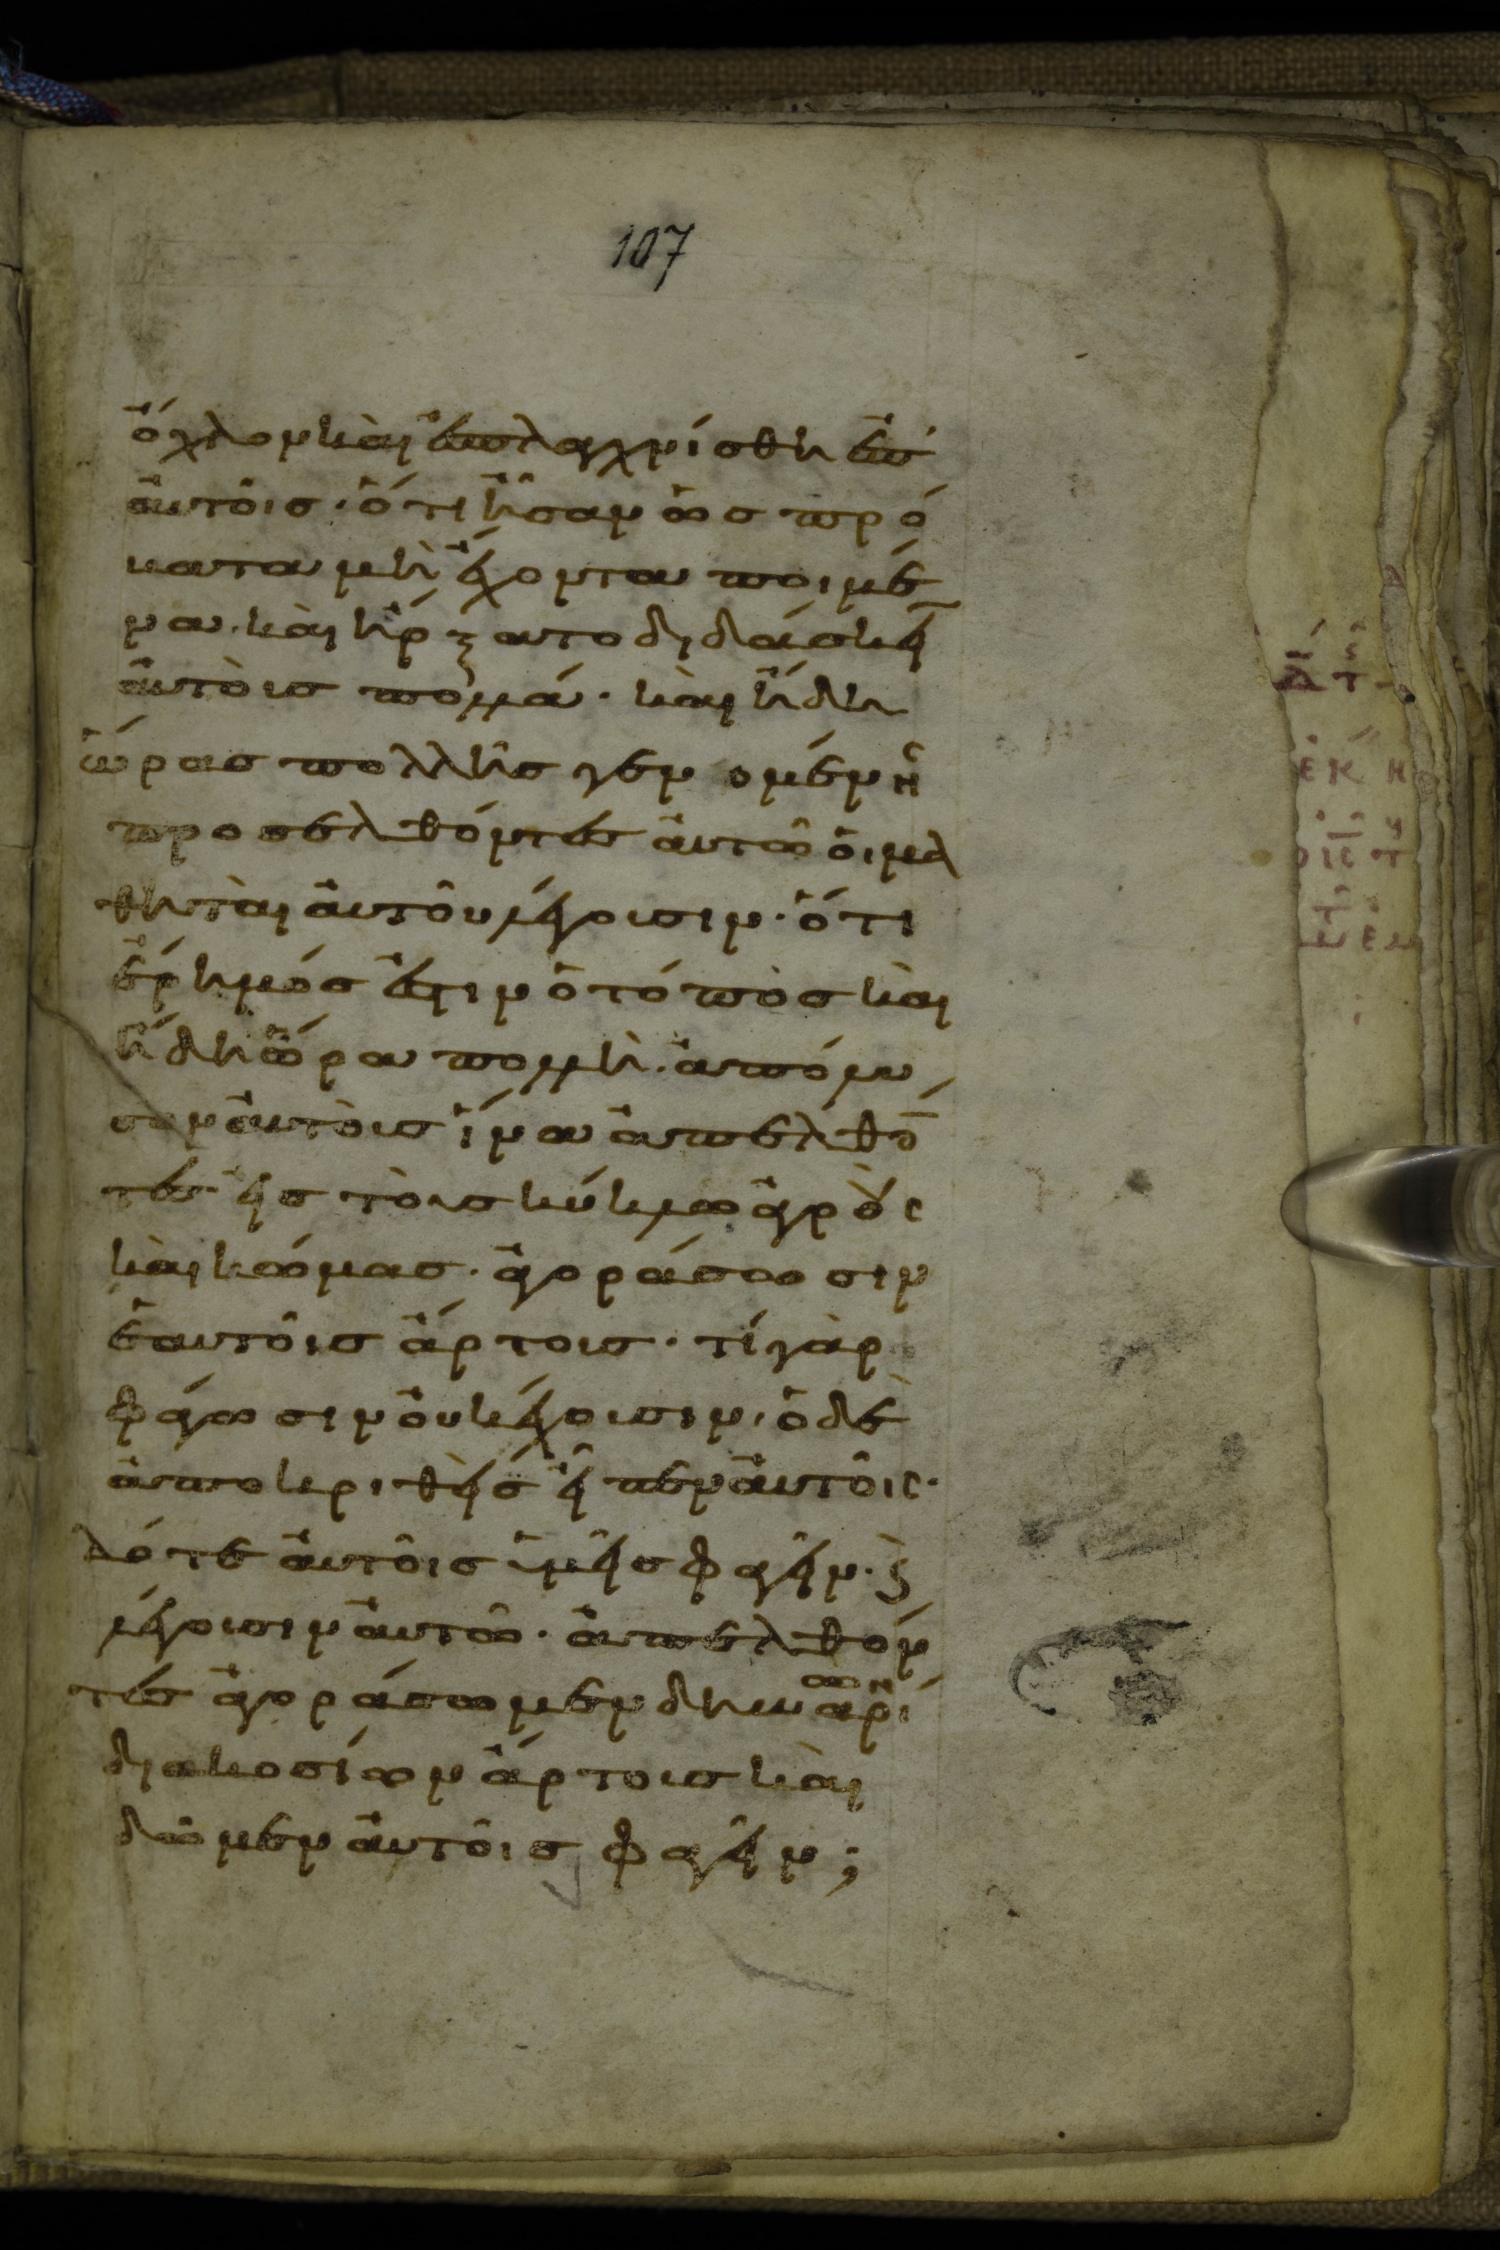 107
ὄχλον καὶ ἐσπλαγχνίσθη ἐπ'
αὐτοῖς· ὅτι ἦσαν ὡς πρό
βατα μὴ ἔχοντα ποιμέ
να. καὶ ἤρξατο διδάσκει
αὐτοὺς πολλά· καὶ ἤδη
ὥρας πολλῆς γενομένης
προσελθόντες αὐτῶ οἱ μα
θηταὶ αὐτοῦ λέγουσιν· ὅτι
ἔρημός ἐστιν ὁ τόπος καὶ
ἤδη ὥρα πολλὴ. ἀπόλυ
σον αὐτοὺς ἵνα ἀπελθό
τες εἰς τοὺς κύκλω ἀγροὺς
καὶ κώμας· ἀγοράσωσιν
ἑαυτοῖς ἄρτους· τί γὰρ
φάγωσιν οὐκ ἔχουσιν. ὁ δὲ
ἀποκριθεὶς εἶπεν αὐτοῖς·
δότε αὐτοῖς ὑμεῖς φαγεῖν· καὶ
λέγουσιν αὐτῶ· ἀπελθόν
τες ἀγοράσωμεν δηναρίων
διακοσίων ἄρτους καὶ
δῶμεν αὐτοῖς φαγεῖν;